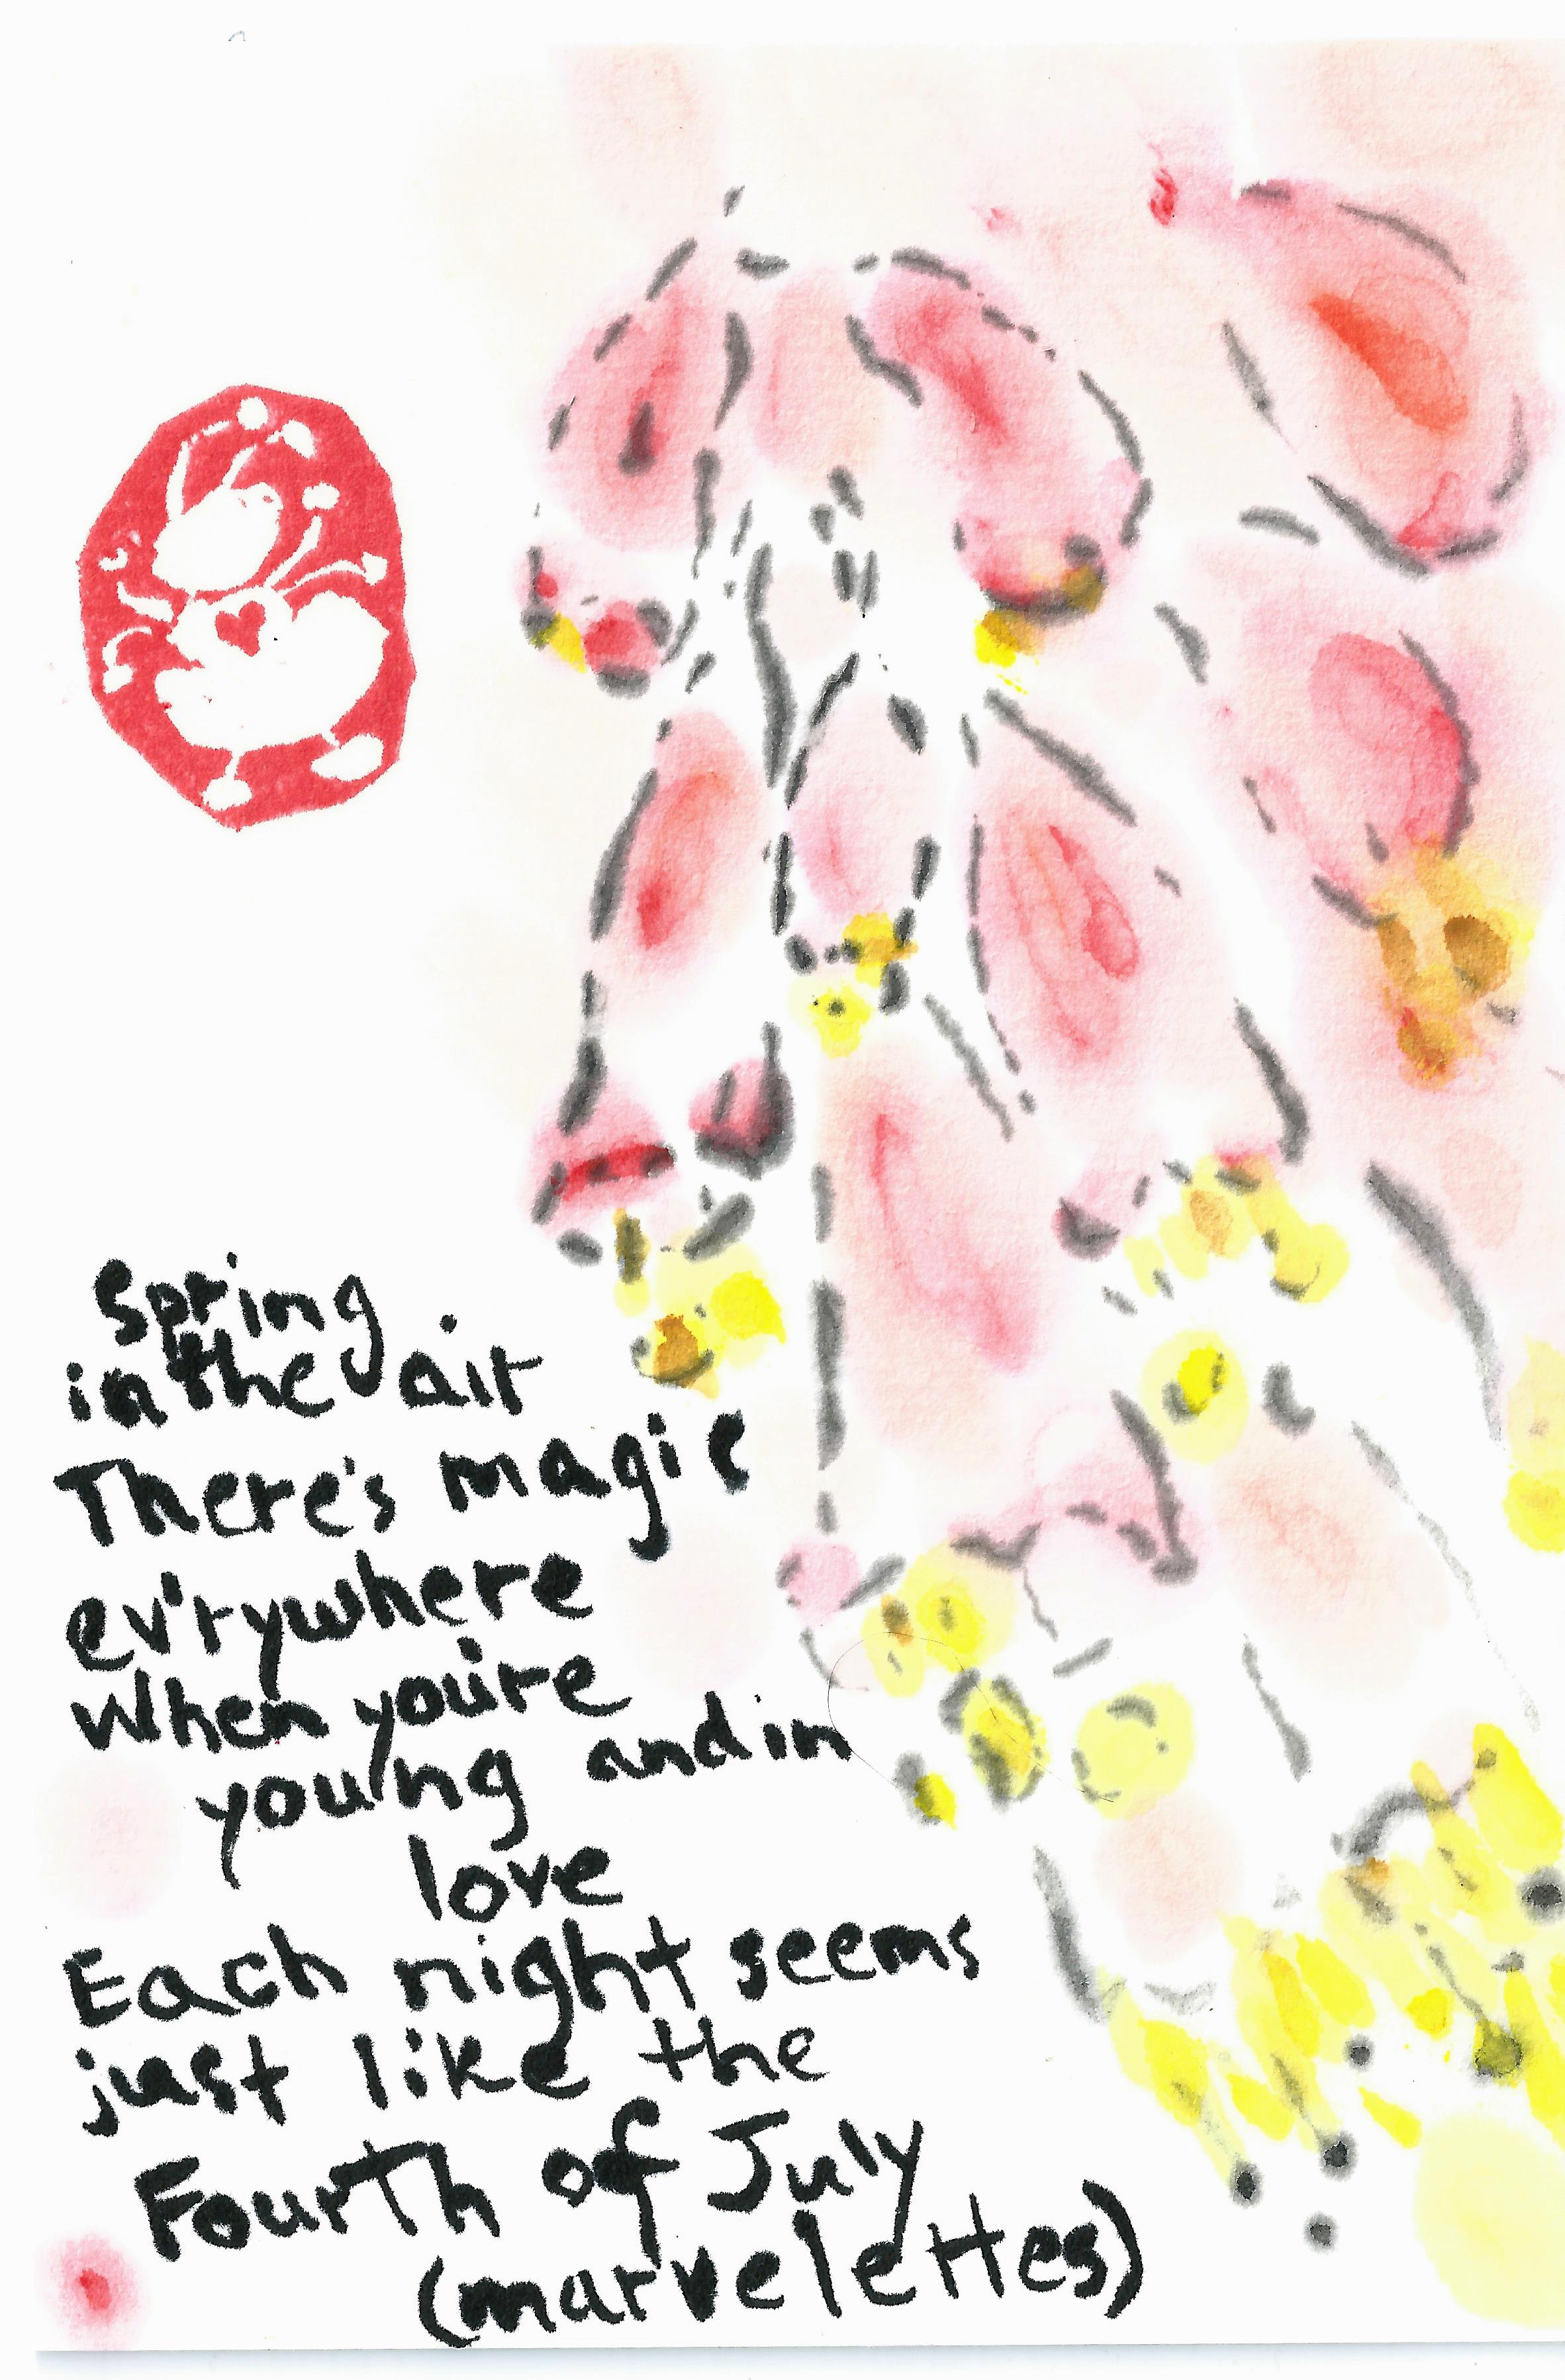 Spring
in the air
There's magic
ev'rywhere
When you're
young and in
love
Each night seems
just like the
Fourth of July
(marvelettes)